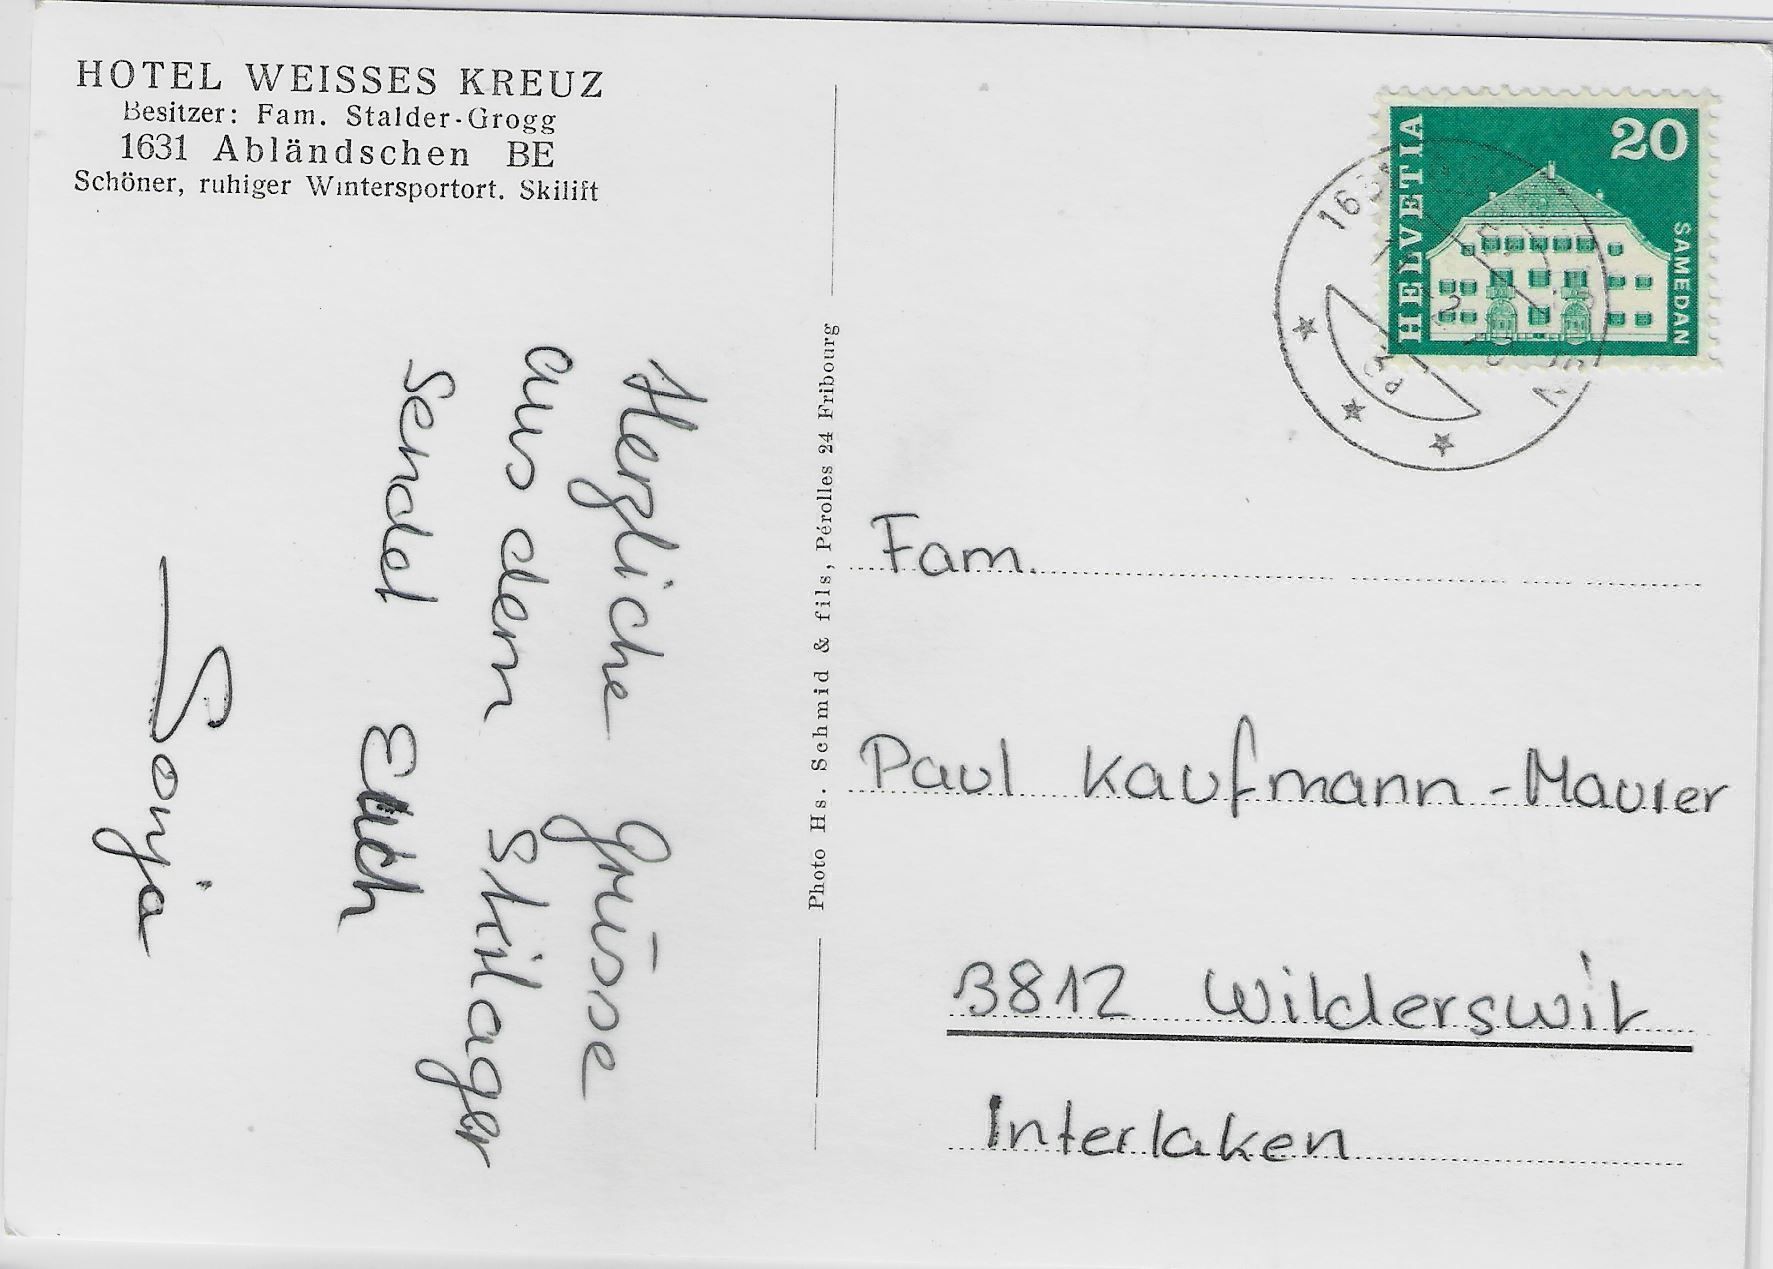 HOTEL WEISSES KREUZ
Besitzer: Fam. Stalder-Grogg
1631 Abländschen BE
Schöner, ruhiger Wintersportort. Skilift
Herzliche Grüsse
aus dem Skilager
sendet Euch
Sonja
Photo Hs. Schmid & fils, Pérolles 24 Fribourg
HELVETIA
20
SAMEDAN
1631
Fam.
Paul Kaufmann-Maurer
3812 Wilderswil
Interlaken